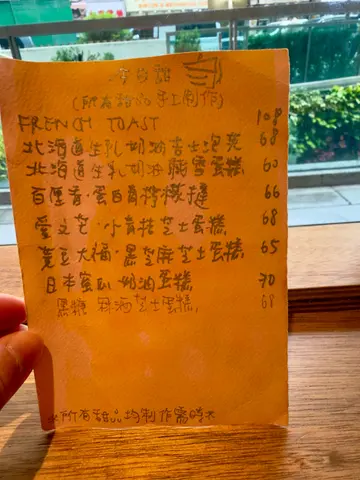 (所有甜品手工制作)
FRENCH TOAST 108
北海道生乳奶油吉士泡芙 68
北海道生乳奶油 蛋糕 60
百里香·蛋白霜檸檬撻 66
愛文芒·小青桔芝士蛋糕 68
莞豆大福·黑芝麻芝士蛋糕 65
日本蜜瓜 奶油蛋糕 70
黑糖 芝士蛋糕 68
所有甜品均制作需時